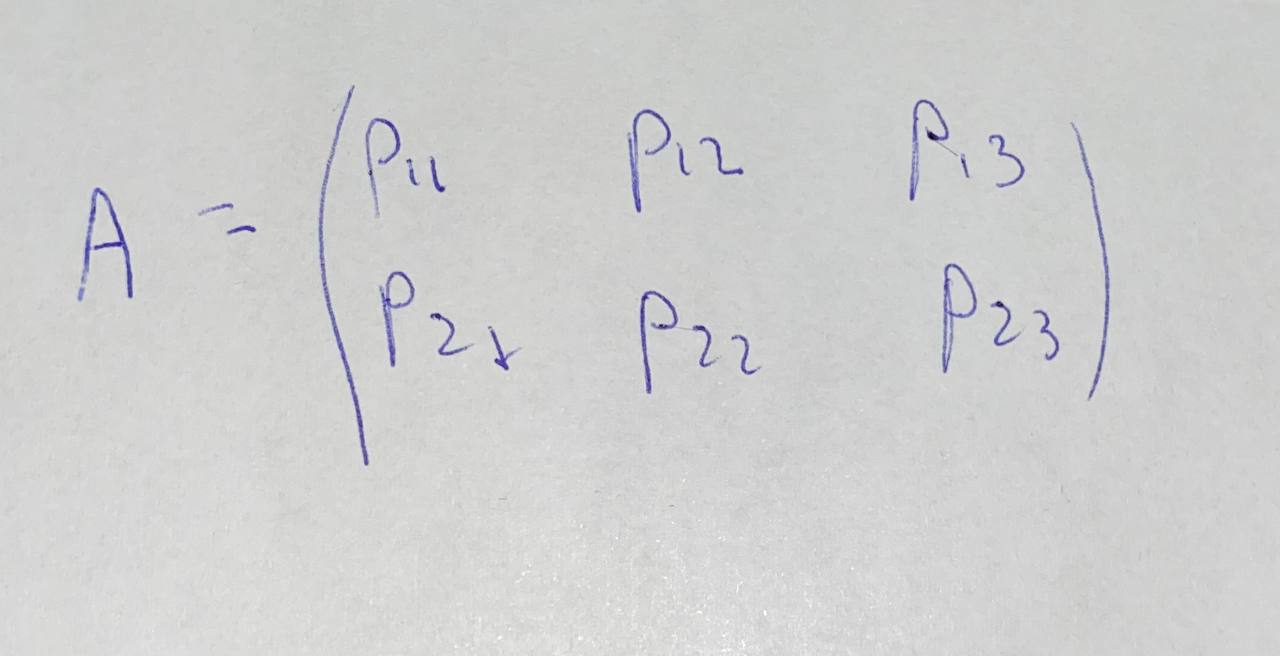 A = ( P11 P12 P13
P21 P22 P23 )